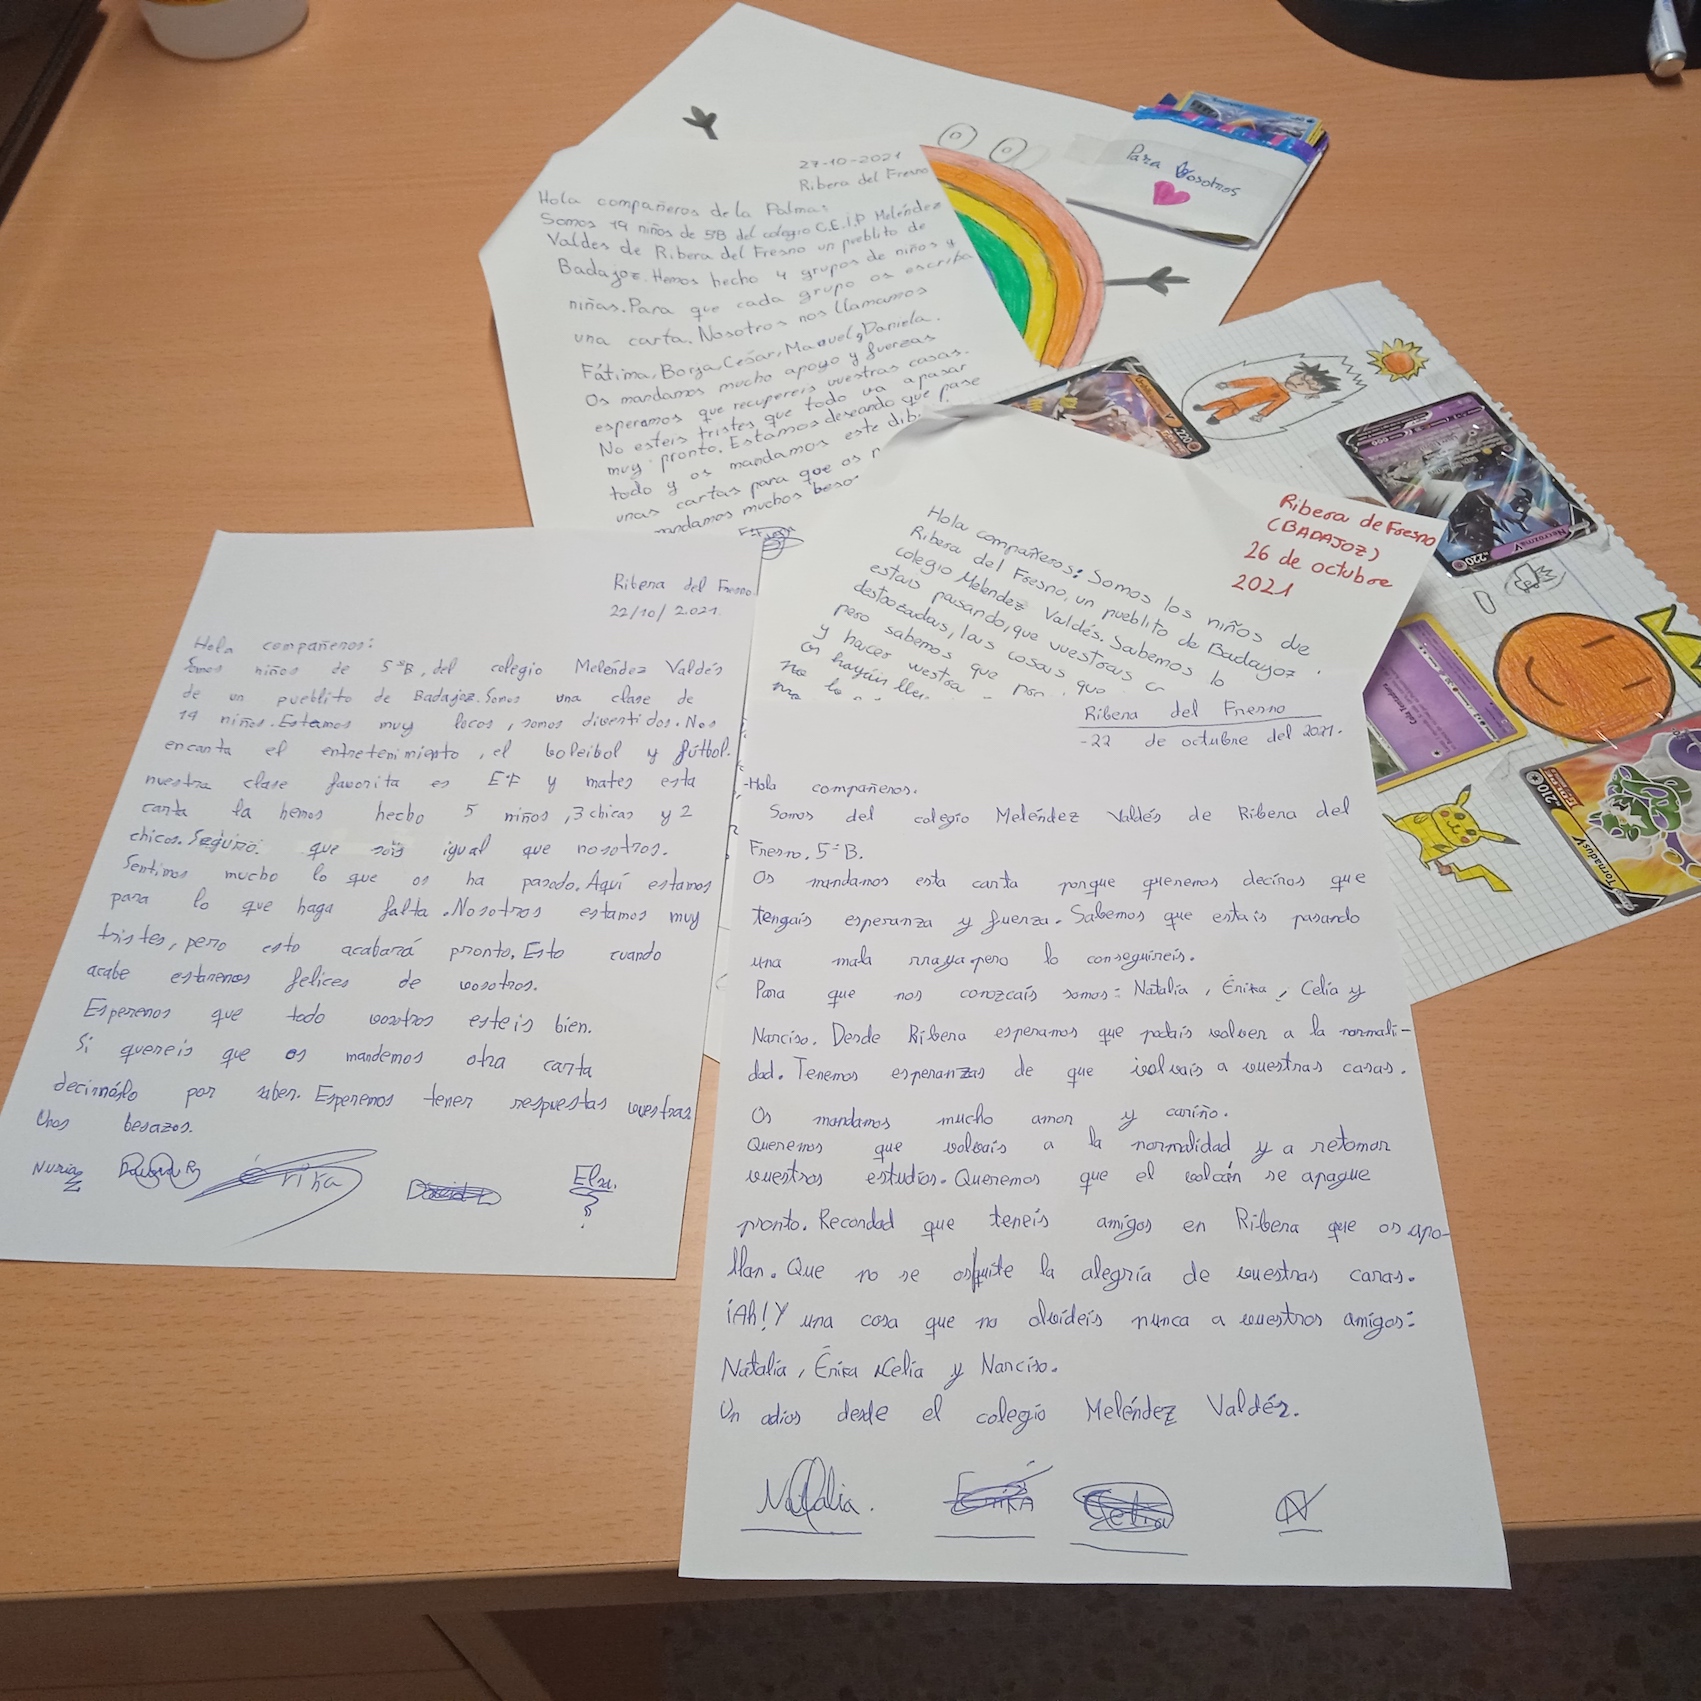 27-10-2021
Ribera del Fresno
Hola compañeros de la Palma:
Somos 19 niños de 5ºB del colegio C.E.I.P Meléndez
Valdes de Ribera del Fresno un pueblito de
Badajoz. Hemos hecho 4 grupos de niños y
niñas. Para que cada grupo os escriba
una carta. Nosotros nos llamamos
Fátima, Borja, César, Manuel y Daniela.
Os mandamos mucho apoyo y fuerzas
esperamos que recupereis vuestras casas.
No esteis tristes que todo va a pasar
muy pronto. Estamos deseando que pase
todo y os mandamos este dib
unas cartas para que os
mandamos muchos beso
Para Vosotros
Ribera de Fresno
(BADAJOZ)
26 de octubre
2021
Hola compañeros: Somos los niños de
Ribera del Fresno, un pueblito de Badajoz.
colegio Meléndez Valdés. Sabemos lo
estais pasando, que vuestras ca
destrozadas, las cosas que
pero sabemos que
y hacer vuestra
os hayáis lle
no lo
Ribera del Fresno
22/10/2021
Hola compañeros:
Somos niños de 5ºB, del colegio Meléndez Valdés
de un pueblito de Badajoz. Somos una clase de
19 niños. Estamos muy locos, somos divertidos. Nos
encanta el entretenimiento, el boleibol y fútbol.
nuestra clase favorita es EF y mates esta
carta la hemos hecho 5 niños, 3 chicas y 2
chicos. Seguro que sois igual que nosotros.
Sentimos mucho lo que os ha pasado. Aquí estamos
para lo que haga falta. Nosotros estamos muy
tristes, pero esto acabará pronto. Esto cuando
acabe estaremos felices de vosotros.
Esperemos que todo vosotros esteis bien.
Si quereis que os mandemos otra carta
decírnoslo por saber. Esperemos tener respuestas vuestras
Unos besazos.
Nuria
Érika
David
Elsa.
Ribera del Fresno
-22 de octubre del 2021.
-Hola compañeros.
Somos del colegio Meléndez Valdés de Ribera del
Fresno. 5ºB.
Os mandamos esta carta porque queremos deciros que
tengais esperanza y fuerza. Sabemos que estais pasando
una mala rraya pero lo conseguireis.
Para que nos conozcais somos: Natalia, Érika, Celia y
Narciso. Desde Ribera esperamos que podais volver a la normali-
dad. Tenemos esperanzas de que volvais a vuestras casas.
Os mandamos mucho amor y cariño.
Queremos que volvais a la normalidad y a retomar
vuestros estudios. Queremos que el volcán se apague
pronto. Recordad que teneis amigos en Ribera que os apo-
llan. Que no se os quite la alegría de vuestras caras.
¡Ah! Y una cosa que no olvideis nunca a vuestros amigos:
Natalia, Érika Celia y Narciso.
Un adios desde el colegio Meléndez Valdés.
Natalia.
Erika
Celia
N
Necrozma V
220
220
Tornadus V
210